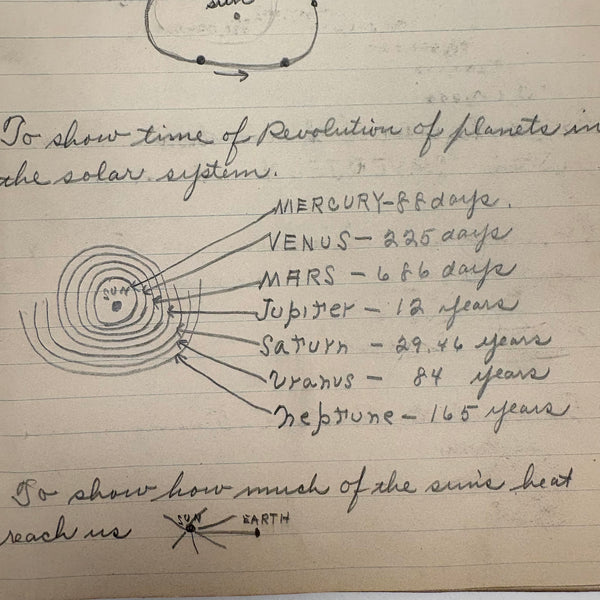 sun
To show time of Revolution of planets in
the solar system.
MERCURY-88 days.
VENUS - 225 days
MARS - 686 days
Jupiter - 12 years
Saturn - 29.46 years
Uranus - 84 years
Neptune - 165 years
SUN
To show how much of the sun's heat
reach us SUN EARTH